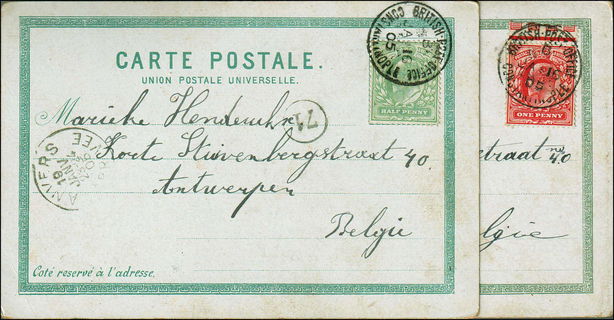 CARTE POSTALE.
UNION POSTALE UNIVERSELLE.
BRITISH POST OFFICE
JA 16
05
HALF PENNY
71
Marieke
Korte Stuivenbergstraat 40
Antwerpen
Belgie
Coté reservé à l'adresse.
ANVERS
19
JANV
BRITISH POST OFFICE
ONE PENNY
straat no 40
gie